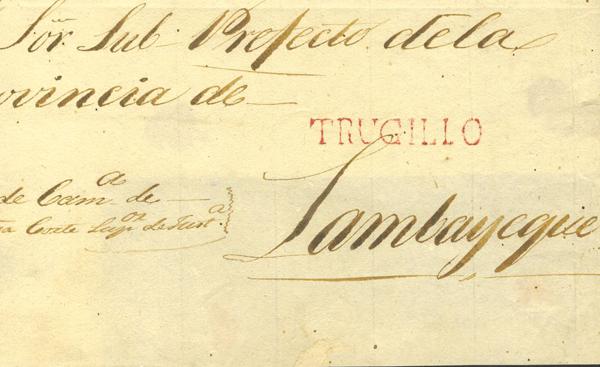 Sor. Sub Prefecto dela
ovincia de
TRUGILLO
de Cama. de
Corte Supor. de Justa.
Lambayeque